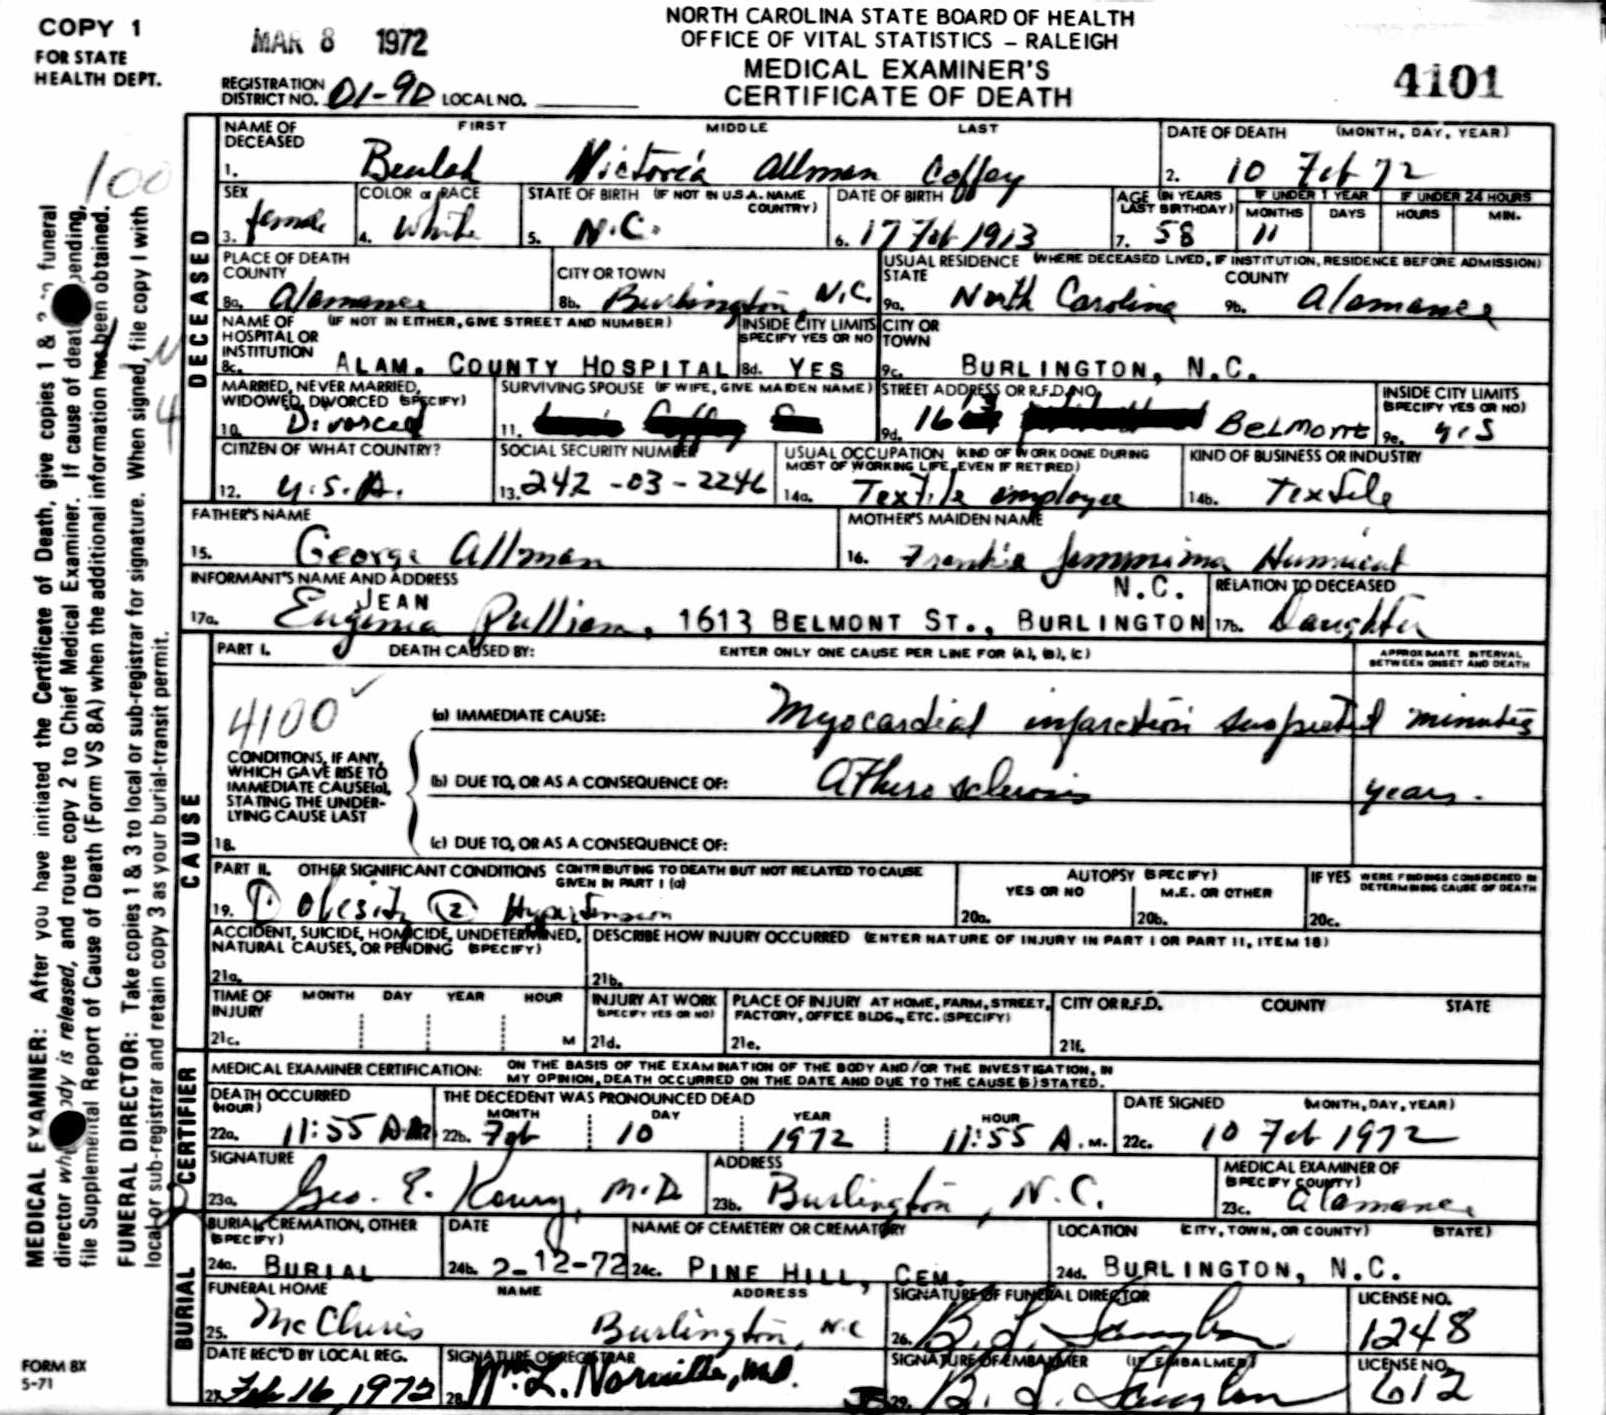 COPY 1
FOR STATE
HEALTH DEPT.
MAR 8 1972
NORTH CAROLINA STATE BOARD OF HEALTH
OFFICE OF VITAL STATISTICS – RALEIGH
MEDICAL EXAMINER'S
CERTIFICATE OF DEATH
4101
REGISTRATION
DISTRICT NO. 01-90 LOCAL NO.
DECEASED
NAME OF DECEASED FIRST MIDDLE LAST
1. Beulah Victoria Allman Coffey
DATE OF DEATH (MONTH, DAY, YEAR)
2. 10 Feb 72
SEX
3. female
COLOR or RACE
4. White
STATE OF BIRTH (IF NOT IN U.S.A. NAME COUNTRY)
5. N.C.
DATE OF BIRTH
6. 17 Feb 1913
AGE (IN YEARS LAST BIRTHDAY)
7. 58
IF UNDER 1 YEAR
MONTHS DAYS
11
IF UNDER 24 HOURS
HOURS MIN.
PLACE OF DEATH
COUNTY
8a. Alamance
CITY OR TOWN
8b. Burlington, N.C.
USUAL RESIDENCE (WHERE DECEASED LIVED, IF INSTITUTION, RESIDENCE BEFORE ADMISSION)
STATE
9a. North Carolina
COUNTY
9b. Alamance
NAME OF HOSPITAL OR INSTITUTION (IF NOT IN EITHER, GIVE STREET AND NUMBER)
8c. ALAM. COUNTY HOSPITAL
INSIDE CITY LIMITS
SPECIFY YES OR NO
8d. YES
CITY OR TOWN
9c. BURLINGTON, N.C.
MARRIED, NEVER MARRIED, WIDOWED, DIVORCED (SPECIFY)
10. Divorced
SURVIVING SPOUSE (IF WIFE, GIVE MAIDEN NAME)
11.
STREET ADDRESS OR R.F.D. NO.
9d. 1613 BELMONT
INSIDE CITY LIMITS
(SPECIFY YES OR NO)
9e. yes
CITIZEN OF WHAT COUNTRY?
12. U.S.A.
SOCIAL SECURITY NUMBER
13. 242-03-2246
USUAL OCCUPATION (KIND OF WORK DONE DURING MOST OF WORKING LIFE, EVEN IF RETIRED)
14a. Textile employee
KIND OF BUSINESS OR INDUSTRY
14b. Textile
FATHER'S NAME
15. George Allman
MOTHER'S MAIDEN NAME
16. Frankie Jemmima
INFORMANT'S NAME AND ADDRESS
JEAN
17a. Eugenia Pulliam, 1613 BELMONT ST., BURLINGTON N.C.
RELATION TO DECEASED
17b. Daughter
CAUSE
PART I. DEATH CAUSED BY: ENTER ONLY ONE CAUSE PER LINE FOR (A), (B), (C)
APPROXIMATE INTERVAL BETWEEN ONSET AND DEATH
4100
(a) IMMEDIATE CAUSE: Myocardial infarction suspected minutes
CONDITIONS, IF ANY, WHICH GAVE RISE TO IMMEDIATE CAUSE(a), STATING THE UNDERLYING CAUSE LAST
(b) DUE TO, OR AS A CONSEQUENCE OF: Atherosclerosis years.
18. (c) DUE TO, OR AS A CONSEQUENCE OF:
PART II. OTHER SIGNIFICANT CONDITIONS CONTRIBUTING TO DEATH BUT NOT RELATED TO CAUSE GIVEN IN PART I (a)
19. ① Obesity ② Hypertension
AUTOPSY (SPECIFY)
YES OR NO M.E. OR OTHER
20a. 20b.
IF YES WERE FINDINGS CONSIDERED IN DETERMINING CAUSE OF DEATH
20c.
ACCIDENT, SUICIDE, HOMICIDE, UNDETERMINED, NATURAL CAUSES, OR PENDING (SPECIFY)
21a.
DESCRIBE HOW INJURY OCCURRED (ENTER NATURE OF INJURY IN PART I OR PART II, ITEM 18)
21b.
TIME OF INJURY MONTH DAY YEAR HOUR
21c. M
INJURY AT WORK
(SPECIFY YES OR NO)
21d.
PLACE OF INJURY AT HOME, FARM, STREET, FACTORY, OFFICE BLDG., ETC. (SPECIFY)
21e.
CITY OR R.F.D. COUNTY STATE
21f.
CERTIFIER
MEDICAL EXAMINER CERTIFICATION: ON THE BASIS OF THE EXAMINATION OF THE BODY AND/OR THE INVESTIGATION, IN MY OPINION, DEATH OCCURRED ON THE DATE AND DUE TO THE CAUSE(S) STATED.
DEATH OCCURRED
(HOUR)
22a. 11:55 A.M.
THE DECEDENT WAS PRONOUNCED DEAD
MONTH DAY YEAR HOUR
22b. Feb 10 1972 11:55 A.M.
DATE SIGNED (MONTH, DAY, YEAR)
22c. 10 Feb 1972
SIGNATURE
23a. Geo. E. Koury, M.D.
ADDRESS
23b. Burlington, N.C.
MEDICAL EXAMINER OF
(SPECIFY COUNTY)
23c. Alamance
BURIAL
BURIAL, CREMATION, OTHER
(SPECIFY)
24a. BURIAL
DATE
24b. 2-12-72
NAME OF CEMETERY OR CREMATORY
24c. PINE HILL, CEM.
LOCATION (CITY, TOWN, OR COUNTY) (STATE)
24d. BURLINGTON, N.C.
FUNERAL HOME NAME ADDRESS
25. McClures Burlington, N.C.
SIGNATURE OF FUNERAL DIRECTOR
26.
LICENSE NO.
1248
DATE REC'D BY LOCAL REG.
27. Feb 16, 1972
SIGNATURE OF REGISTRAR
28. Wm. L. Norville, M.D.
SIGNATURE OF EMBALMER (IF EMBALMED)
29.
LICENSE NO.
612
FORM 8X
5-71
100
4
MEDICAL EXAMINER: After you have initiated the Certificate of Death, give copies 1 & funeral
director is released, and route copy 2 to Chief Medical Examiner. If cause of death pending,
file Supplemental Report of Cause of Death (Form VS 8A) when the additional information has been obtained.
FUNERAL DIRECTOR: Take copies 1 & 3 to local or sub-registrar for signature. When signed, file copy 1 with
local or sub-registrar and retain copy 3 as your burial-transit permit.